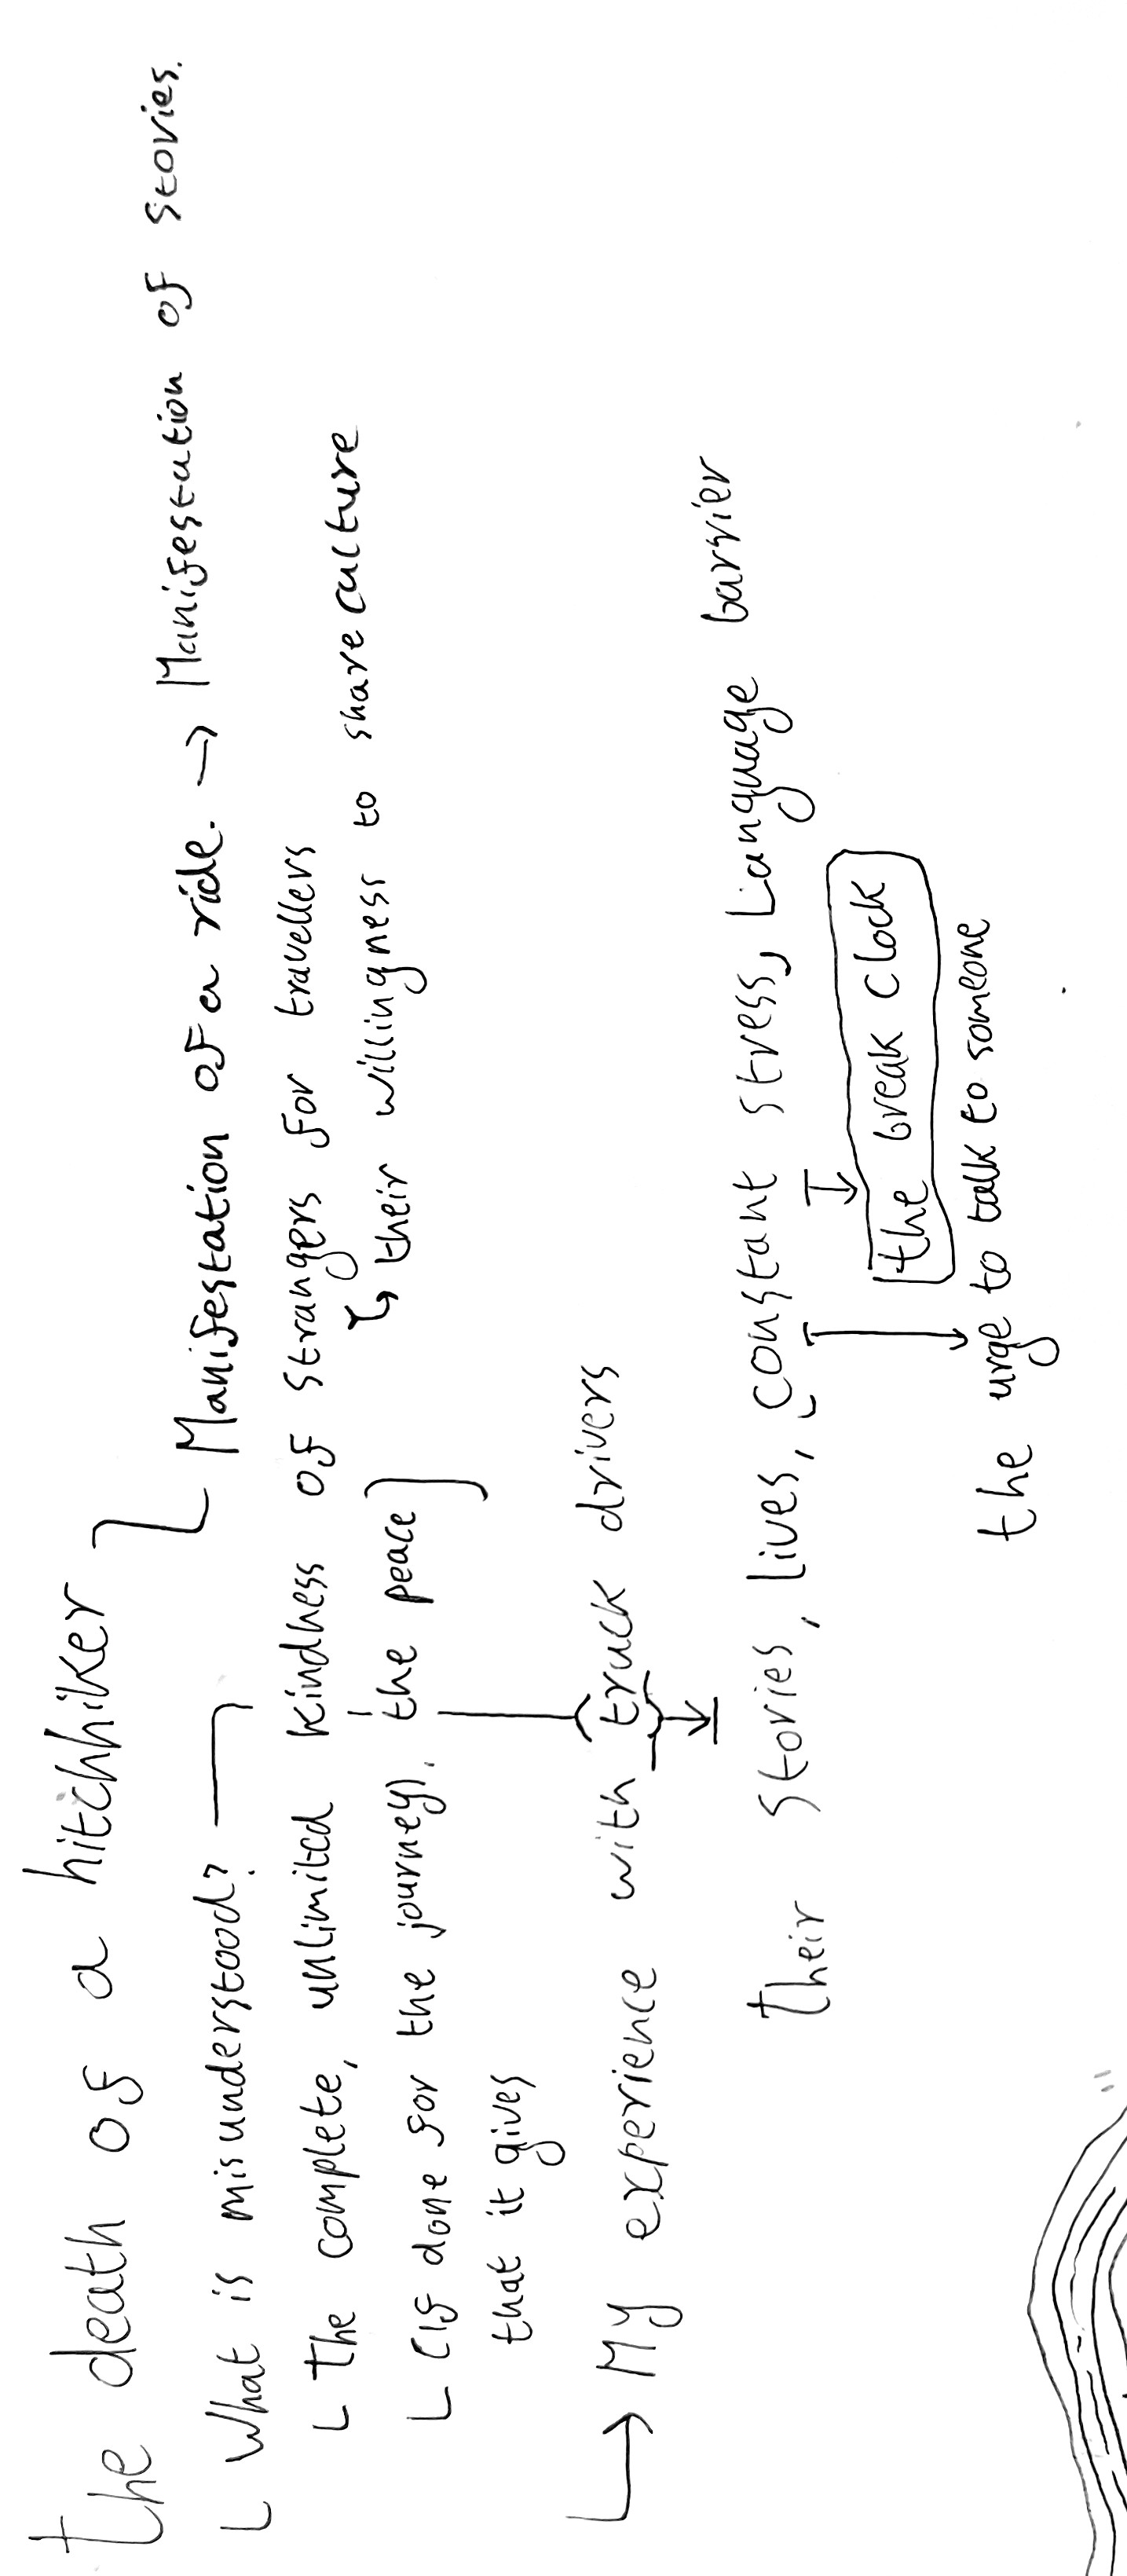 the death of a hitchhiker
Manifestation of a ride. → Manifestation of stories.
What is misunderstood?
The complete, unlimited kindness of strangers for travellers
their willingness to share culture
(if done for the journey). the peace
that it gives
→ My experience with truck drivers
Their stories, lives, constant stress, Language barrier
the break clock
the urge to talk to someone